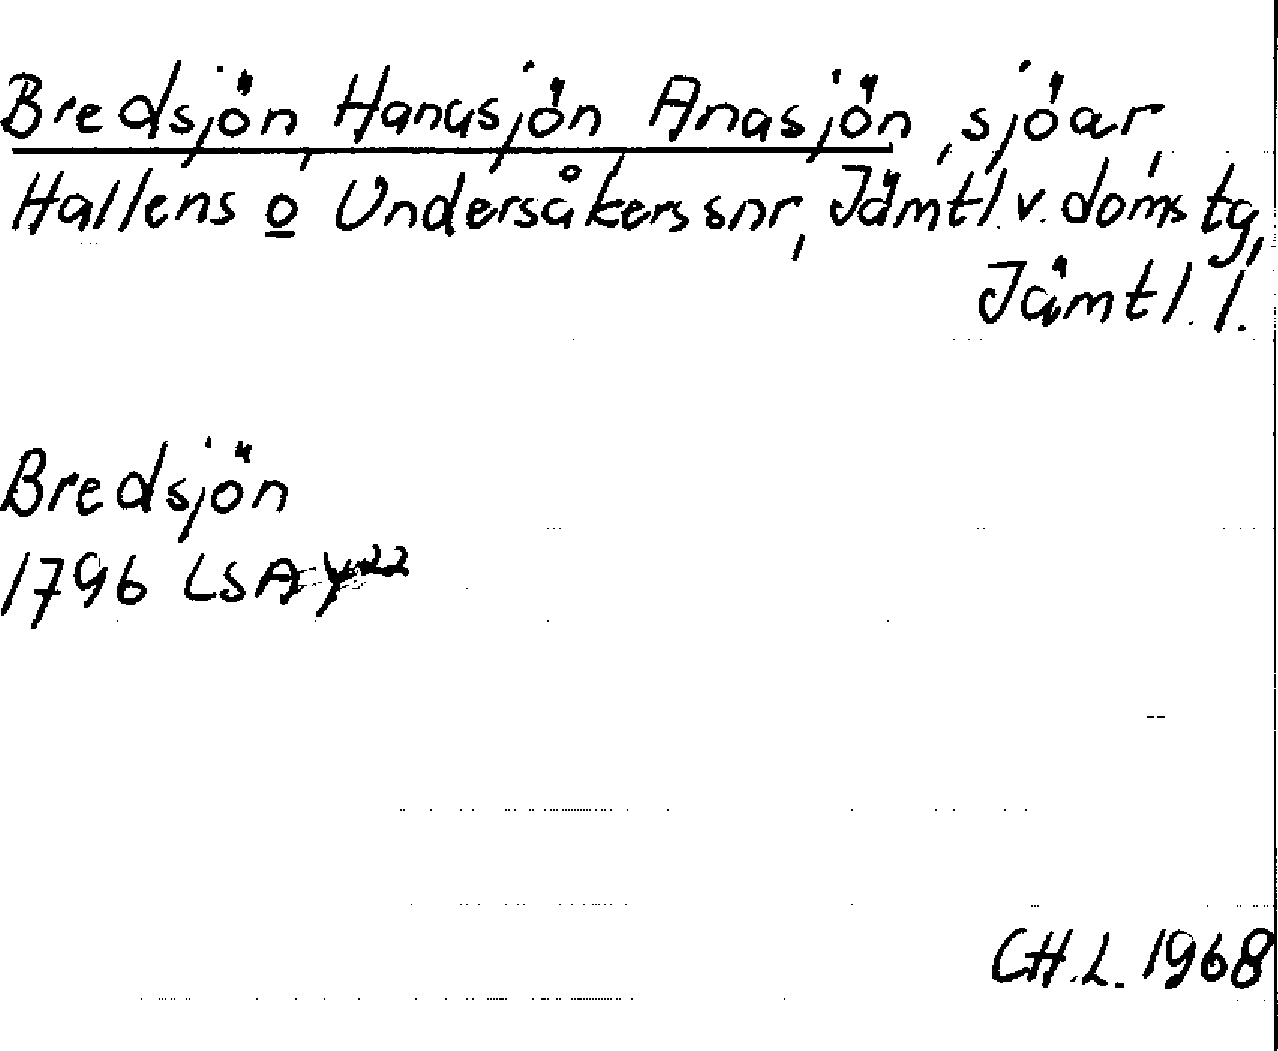 Bredsjön, Hanasjön, Anasjön, sjöar,
Hallens o Undersåkers snr, Jämtl. v. doms tg,
Jämtl. l.
Bredsjön
1796 LSA Y22
CH.L. 1968